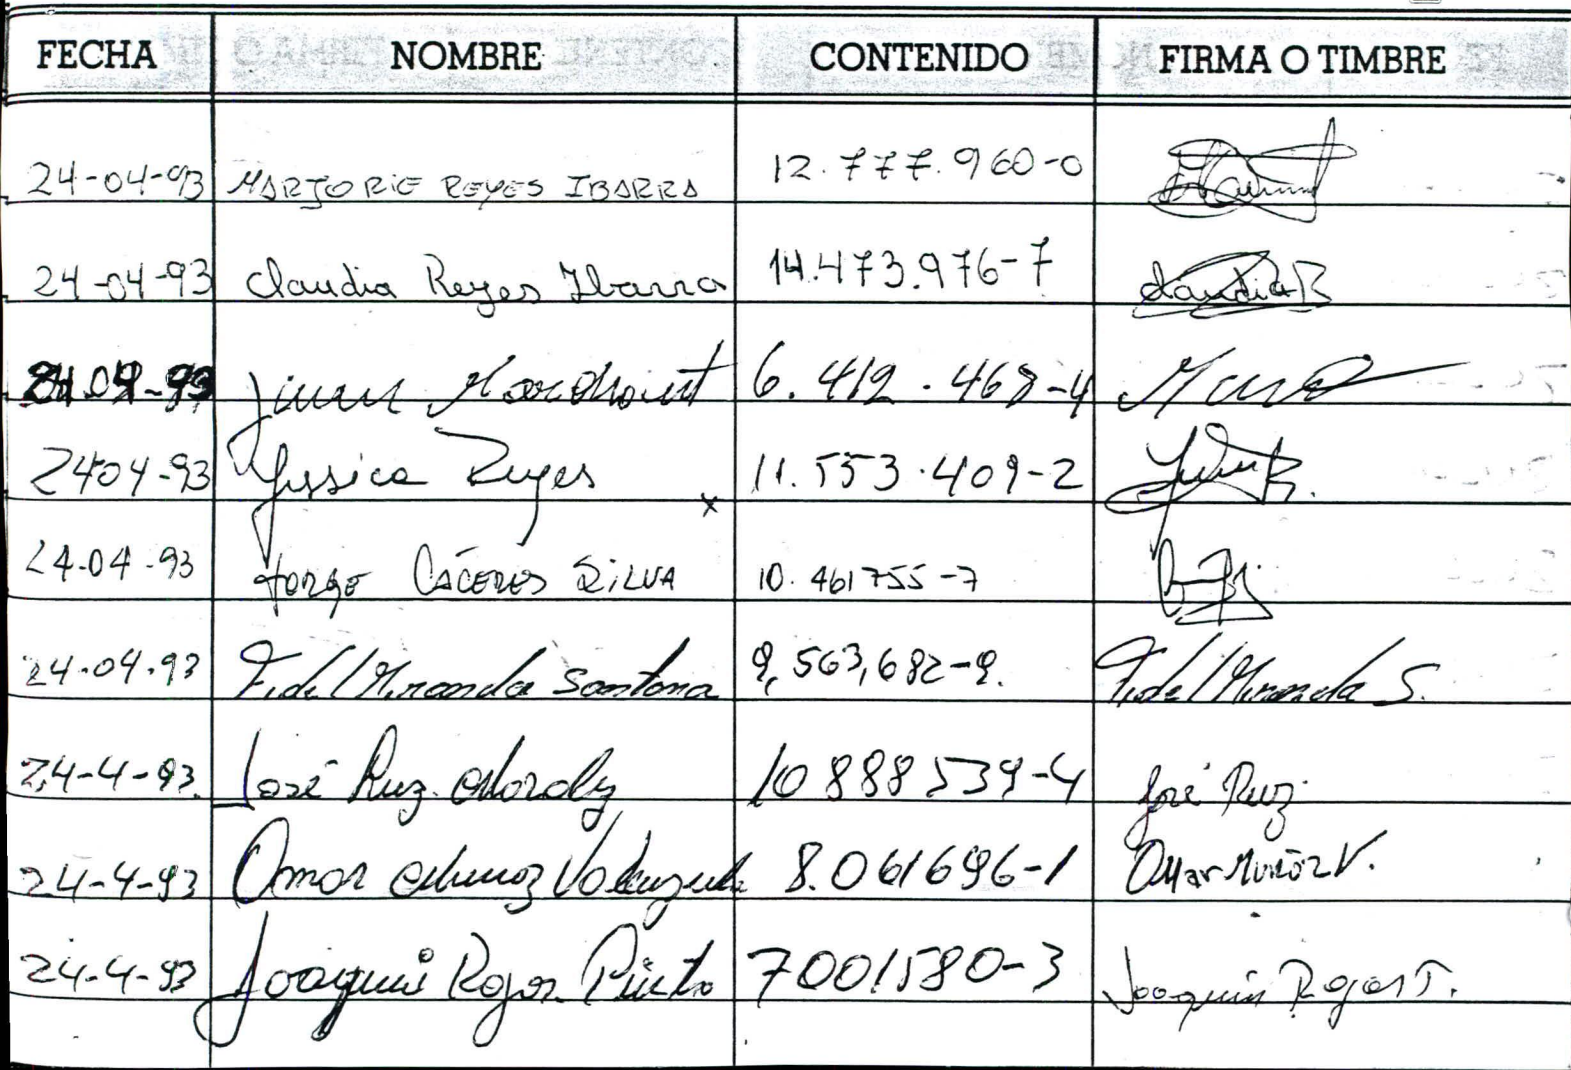 FECHA NOMBRE CONTENIDO FIRMA O TIMBRE
24-04-93 MARJORIE REYES IBARRA 12.777.960-0
24-04-93 Claudia Reyes Ibarra 14.473.976-7 Claudia R
24.04-93 Marchant 6.412.468-4
2404-93 Yessica Reyes 11.553.409-2
x
24-04-93 Jorge CÁCERES SILVA 10.461755-7
24-04-93 Fidel Miranda Santana 9,563,682-9. Fidel Miranda S.
24-4-93. José Ruz 10888539-4 José Ruz
24-4-93 Omar Munoz Valenzuela 8.061696-1 Omar Muñoz V.
24-4-93 Joaquin Rojas Pinto 7001580-3 Joaquin Rojas P.